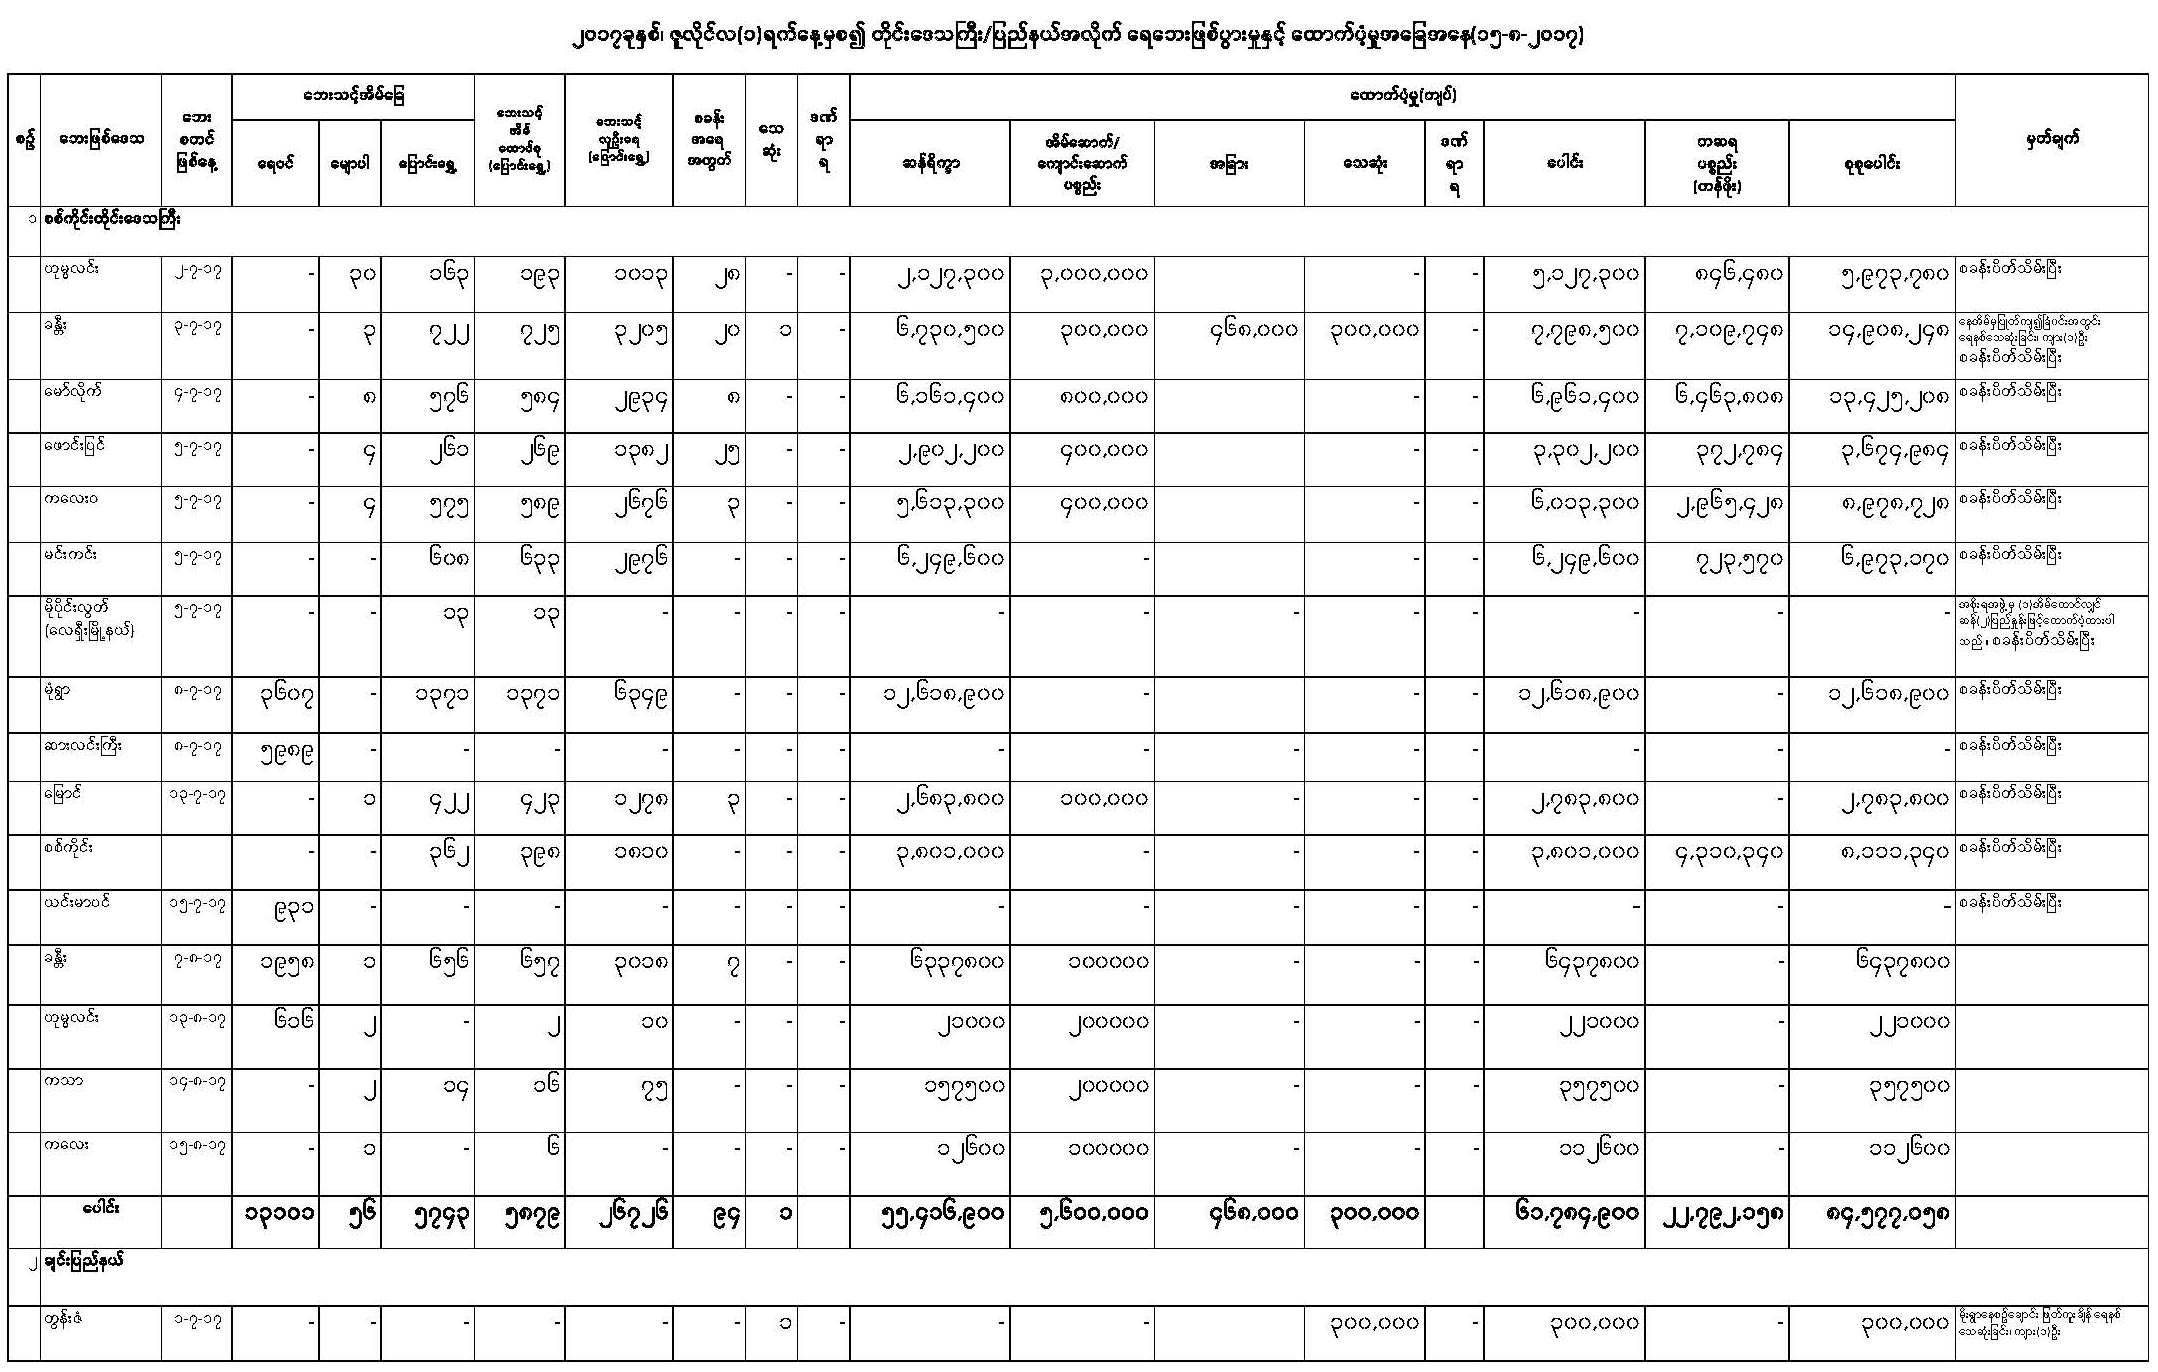 ၂၀၁၇ခုနှစ်၊ ဇူလိုင်လ(၁)ရက်နေ့မှစ၍ တိုင်းဒေသကြီး/ပြည်နယ်အလိုက် ရေဘေးဖြစ်ပွားမှုနှင့် ထောက်ပံ့မှုအခြေအနေ(၁၅-၈-၂၀၁၇)
စဉ် ဘေးဖြစ်ဒေသ ဘေး စတင် ဖြစ်နေ့ ဘေးသင့်အိမ်ခြေ ဘေးသင့် အိမ် ထောင်စု (ပြောင်းရွှေ့) ဘေးသင့် လူဦးရေ (ပြောင်းရွှေ့) စခန်း အရေ အတွက် သေ ဆုံး ဒဏ် ရာ ရ ထောက်ပံ့မှု(ကျပ်) မှတ်ချက်
ရေဝင် မျောပါ ပြောင်းရွှေ့ ဆန်ရိက္ခာ အိမ်ဆောက်/ ကျောင်းဆောက် ပစ္စည်း အခြား သေဆုံး ဒဏ် ရာ ရ ပေါင်း ကဆရ ပစ္စည်း (တန်ဖိုး) စုစုပေါင်း
၁ စစ်ကိုင်းတိုင်းဒေသကြီး
ဟုမ္မလင်း ၂-၇-၁၇ - ၃၀ ၁၆၃ ၁၉၃ ၁၀၁၃ ၂၈ - - ၂,၁၂၇,၃၀၀ ၃,၀၀၀,၀၀၀ - - ၅,၁၂၇,၃၀၀ ၈၄၆,၄၈၀ ၅,၉၇၃,၇၈၀ စခန်းပိတ်သိမ်းပြီး
ခန္တီး ၃-၇-၁၇ - ၃ ၇၂၂ ၇၂၅ ၃၂၀၅ ၂၀ ၁ - ၆,၇၃၀,၅၀၀ ၃၀၀,၀၀၀ ၄၆၈,၀၀၀ ၃၀၀,၀၀၀ - ၇,၇၉၈,၅၀၀ ၇,၁၀၉,၇၄၈ ၁၄,၉၀၈,၂၄၈ နေအိမ်မှပြုတ်ကျ၍ခြံဝင်းအတွင်း
ရေနစ်သေဆုံးခြင်း၊ ကျား(၁)ဦး
စခန်းပိတ်သိမ်းပြီး
မော်လိုက် ၄-၇-၁၇ - ၈ ၅၇၆ ၅၈၄ ၂၉၃၄ ၈ - - ၆,၁၆၁,၄၀၀ ၈၀၀,၀၀၀ - - ၆,၉၆၁,၄၀၀ ၆,၄၆၃,၈၀၈ ၁၃,၄၂၅,၂၀၈ စခန်းပိတ်သိမ်းပြီး
ဖောင်းပြင် ၅-၇-၁၇ - ၄ ၂၆၁ ၂၆၉ ၁၃၈၂ ၂၅ - - ၂,၉၀၂,၂၀၀ ၄၀၀,၀၀၀ - - ၃,၃၀၂,၂၀၀ ၃၇၂,၇၈၄ ၃,၆၇၄,၉၈၄ စခန်းပိတ်သိမ်းပြီး
ကလေးဝ ၅-၇-၁၇ - ၄ ၅၇၅ ၅၈၉ ၂၆၇၆ ၃ - - ၅,၆၁၃,၃၀၀ ၄၀၀,၀၀၀ - - ၆,၀၁၃,၃၀၀ ၂,၉၆၅,၄၂၈ ၈,၉၇၈,၇၂၈ စခန်းပိတ်သိမ်းပြီး
မင်းကင်း ၅-၇-၁၇ - - ၆၀၈ ၆၃၃ ၂၉၇၆ - - - ၆,၂၄၉,၆၀၀ - - - ၆,၂၄၉,၆၀၀ ၇၂၃,၅၇၀ ၆,၉၇၃,၁၇၀ စခန်းပိတ်သိမ်းပြီး
မိုပိုင်းလွတ် (လေရှီးမြို့နယ်) ၅-၇-၁၇ - - ၁၃ ၁၃ - - - - - - - - - - - အစိုးရအဖွဲ့မှ (၁)အိမ်ထောင်လျှင်
ဆန်(၂)ပြည်နှုန်းဖြင့်ထောက်ပံ့ထားပါ
သည်။ စခန်းပိတ်သိမ်းပြီး
မုံရွာ ၈-၇-၁၇ ၃၆၀၇ - ၁၃၇၁ ၁၃၇၁ ၆၃၄၉ - - - ၁၂,၆၁၈,၉၀၀ - - - ၁၂,၆၁၈,၉၀၀ - ၁၂,၆၁၈,၉၀၀ စခန်းပိတ်သိမ်းပြီး
ဆားလင်းကြီး ၈-၇-၁၇ ၅၉၈၉ - - - - - - - - - - - - - - - စခန်းပိတ်သိမ်းပြီး
မြောင် ၁၃-၇-၁၇ - ၁ ၄၂၂ ၄၂၃ ၁၂၇၈ ၃ - - ၂,၆၈၃,၈၀၀ ၁၀၀,၀၀၀ - - - ၂,၇၈၃,၈၀၀ - ၂,၇၈၃,၈၀၀ စခန်းပိတ်သိမ်းပြီး
စစ်ကိုင်း - - ၃၆၂ ၃၉၈ ၁၈၁၀ - - - ၃,၈၀၁,၀၀၀ - - - - ၃,၈၀၁,၀၀၀ ၄,၃၁၀,၃၄၀ ၈,၁၁၁,၃၄၀ စခန်းပိတ်သိမ်းပြီး
ယင်းမာပင် ၁၅-၇-၁၇ ၉၃၁ - - - - - - - - - - - - - - - စခန်းပိတ်သိမ်းပြီး
ခန္တီး ၇-၈-၁၇ ၁၉၅၈ ၁ ၆၅၆ ၆၅၇ ၃၀၁၈ ၇ - - ၆၃၃၇၈၀၀ ၁၀၀၀၀၀ - - - ၆၄၃၇၈၀၀ - ၆၄၃၇၈၀၀
ဟုမ္မလင်း ၁၃-၈-၁၇ ၆၁၆ ၂ - ၂ ၁၀ - - - ၂၁၀၀၀ ၂၀၀၀၀၀ - - - ၂၂၁၀၀၀ - ၂၂၁၀၀၀
ကသာ ၁၄-၈-၁၇ - ၂ ၁၄ ၁၆ ၇၅ - - - ၁၅၇၅၀၀ ၂၀၀၀၀၀ - - - ၃၅၇၅၀၀ - ၃၅၇၅၀၀
ကလေး ၁၅-၈-၁၇ - ၁ - ၆ - - - - ၁၂၆၀၀ ၁၀၀၀၀၀ - - - ၁၁၂၆၀၀ - ၁၁၂၆၀၀
ပေါင်း ၁၃၁၀၁ ၅၆ ၅၇၄၃ ၅၈၇၉ ၂၆၇၂၆ ၉၄ ၁ ၅၅,၄၁၆,၉၀၀ ၅,၆၀၀,၀၀၀ ၄၆၈,၀၀၀ ၃၀၀,၀၀၀ ၆၁,၇၈၄,၉၀၀ ၂၂,၇၉၂,၁၅၈ ၈၄,၅၇၇,၀၅၈
၂ ချင်းပြည်နယ်
တွန်းဇံ ၁-၇-၁၇ - - - - - - ၁ - - - ၃၀၀,၀၀၀ - ၃၀၀,၀၀၀ - ၃၀၀,၀၀၀ မိုးရွာနေစဉ်ချောင်း ဖြတ်ကူးချိန် ရေနစ်
သေဆုံးခြင်း၊ ကျား(၁)ဦး